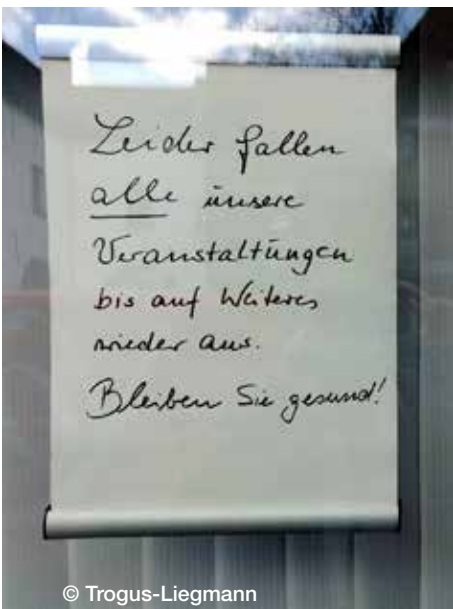 Leider fallen
alle unsere
Veranstaltungen
bis auf Weiteres
wieder aus.
Bleiben Sie gesund!
© Trogus-Liegmann